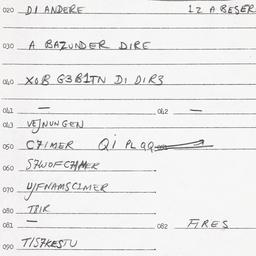 020 DI ANDERE 12 A BESER
030 A BAZUNDER DIRE
040 XOB G3B1TN DI DIR3
041 — 042 —
043 VEJNUNGEN
050 C71MER QI PL QQ
060 S7WOFC71MER
070 UJFNAMSC1MER
080 T81R
081 — 082 FIRES
090 T1S7KESTU